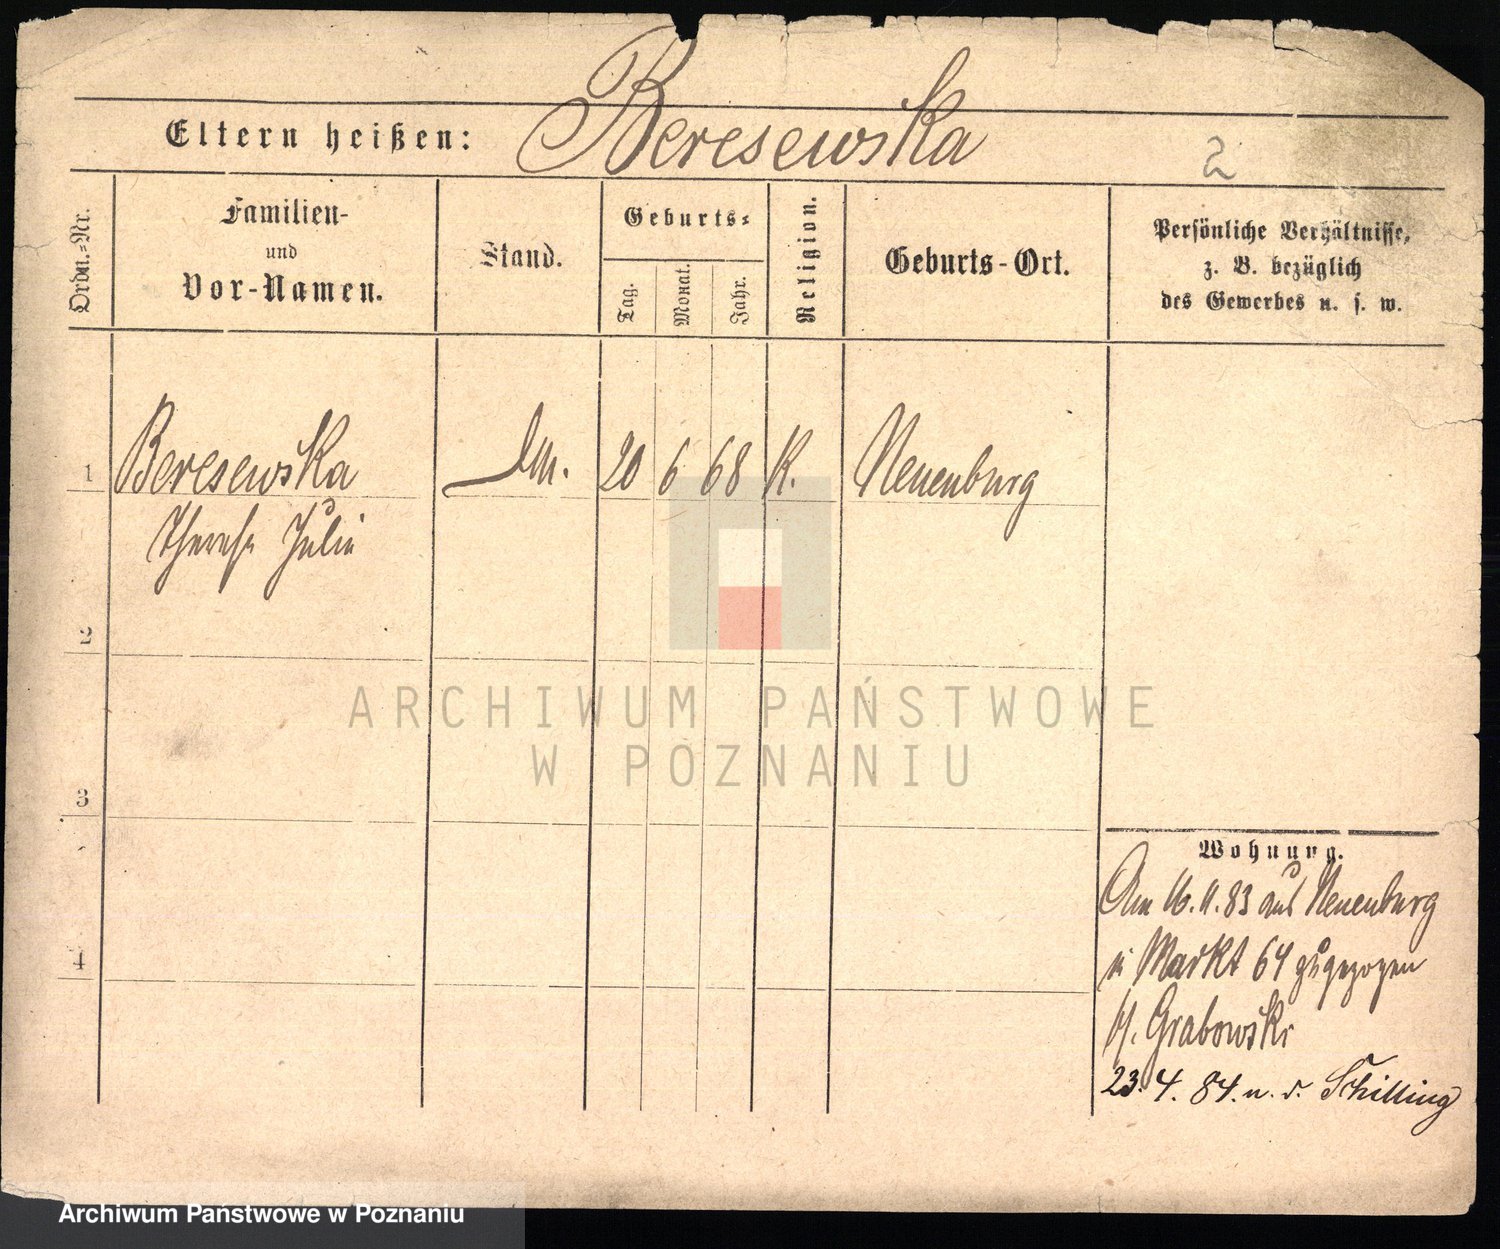 Eltern heißen: Beresewska
2
Ordn.-Nr.
Familien-
und
Vor-Namen.
Stand.
Geburts-
Tag.
Monat.
Jahr.
Religion.
Geburts-Ort.
Persönliche Verhältnisse,
z. B. bezüglich
des Gewerbes u. s. w.
1 Beresewska 20 6 68 K. Neuenburg
Therese Julie
2
3
4
ARCHIWUM PAŃSTWOWE
W POZNANIU
Wohnung.
Am 16.11.83 aus Neuenburg
n Markt 64 zugezogen
b/. Grabowski
23.4.84. n. v. Schilling
Archiwum Państwowe w Poznaniu